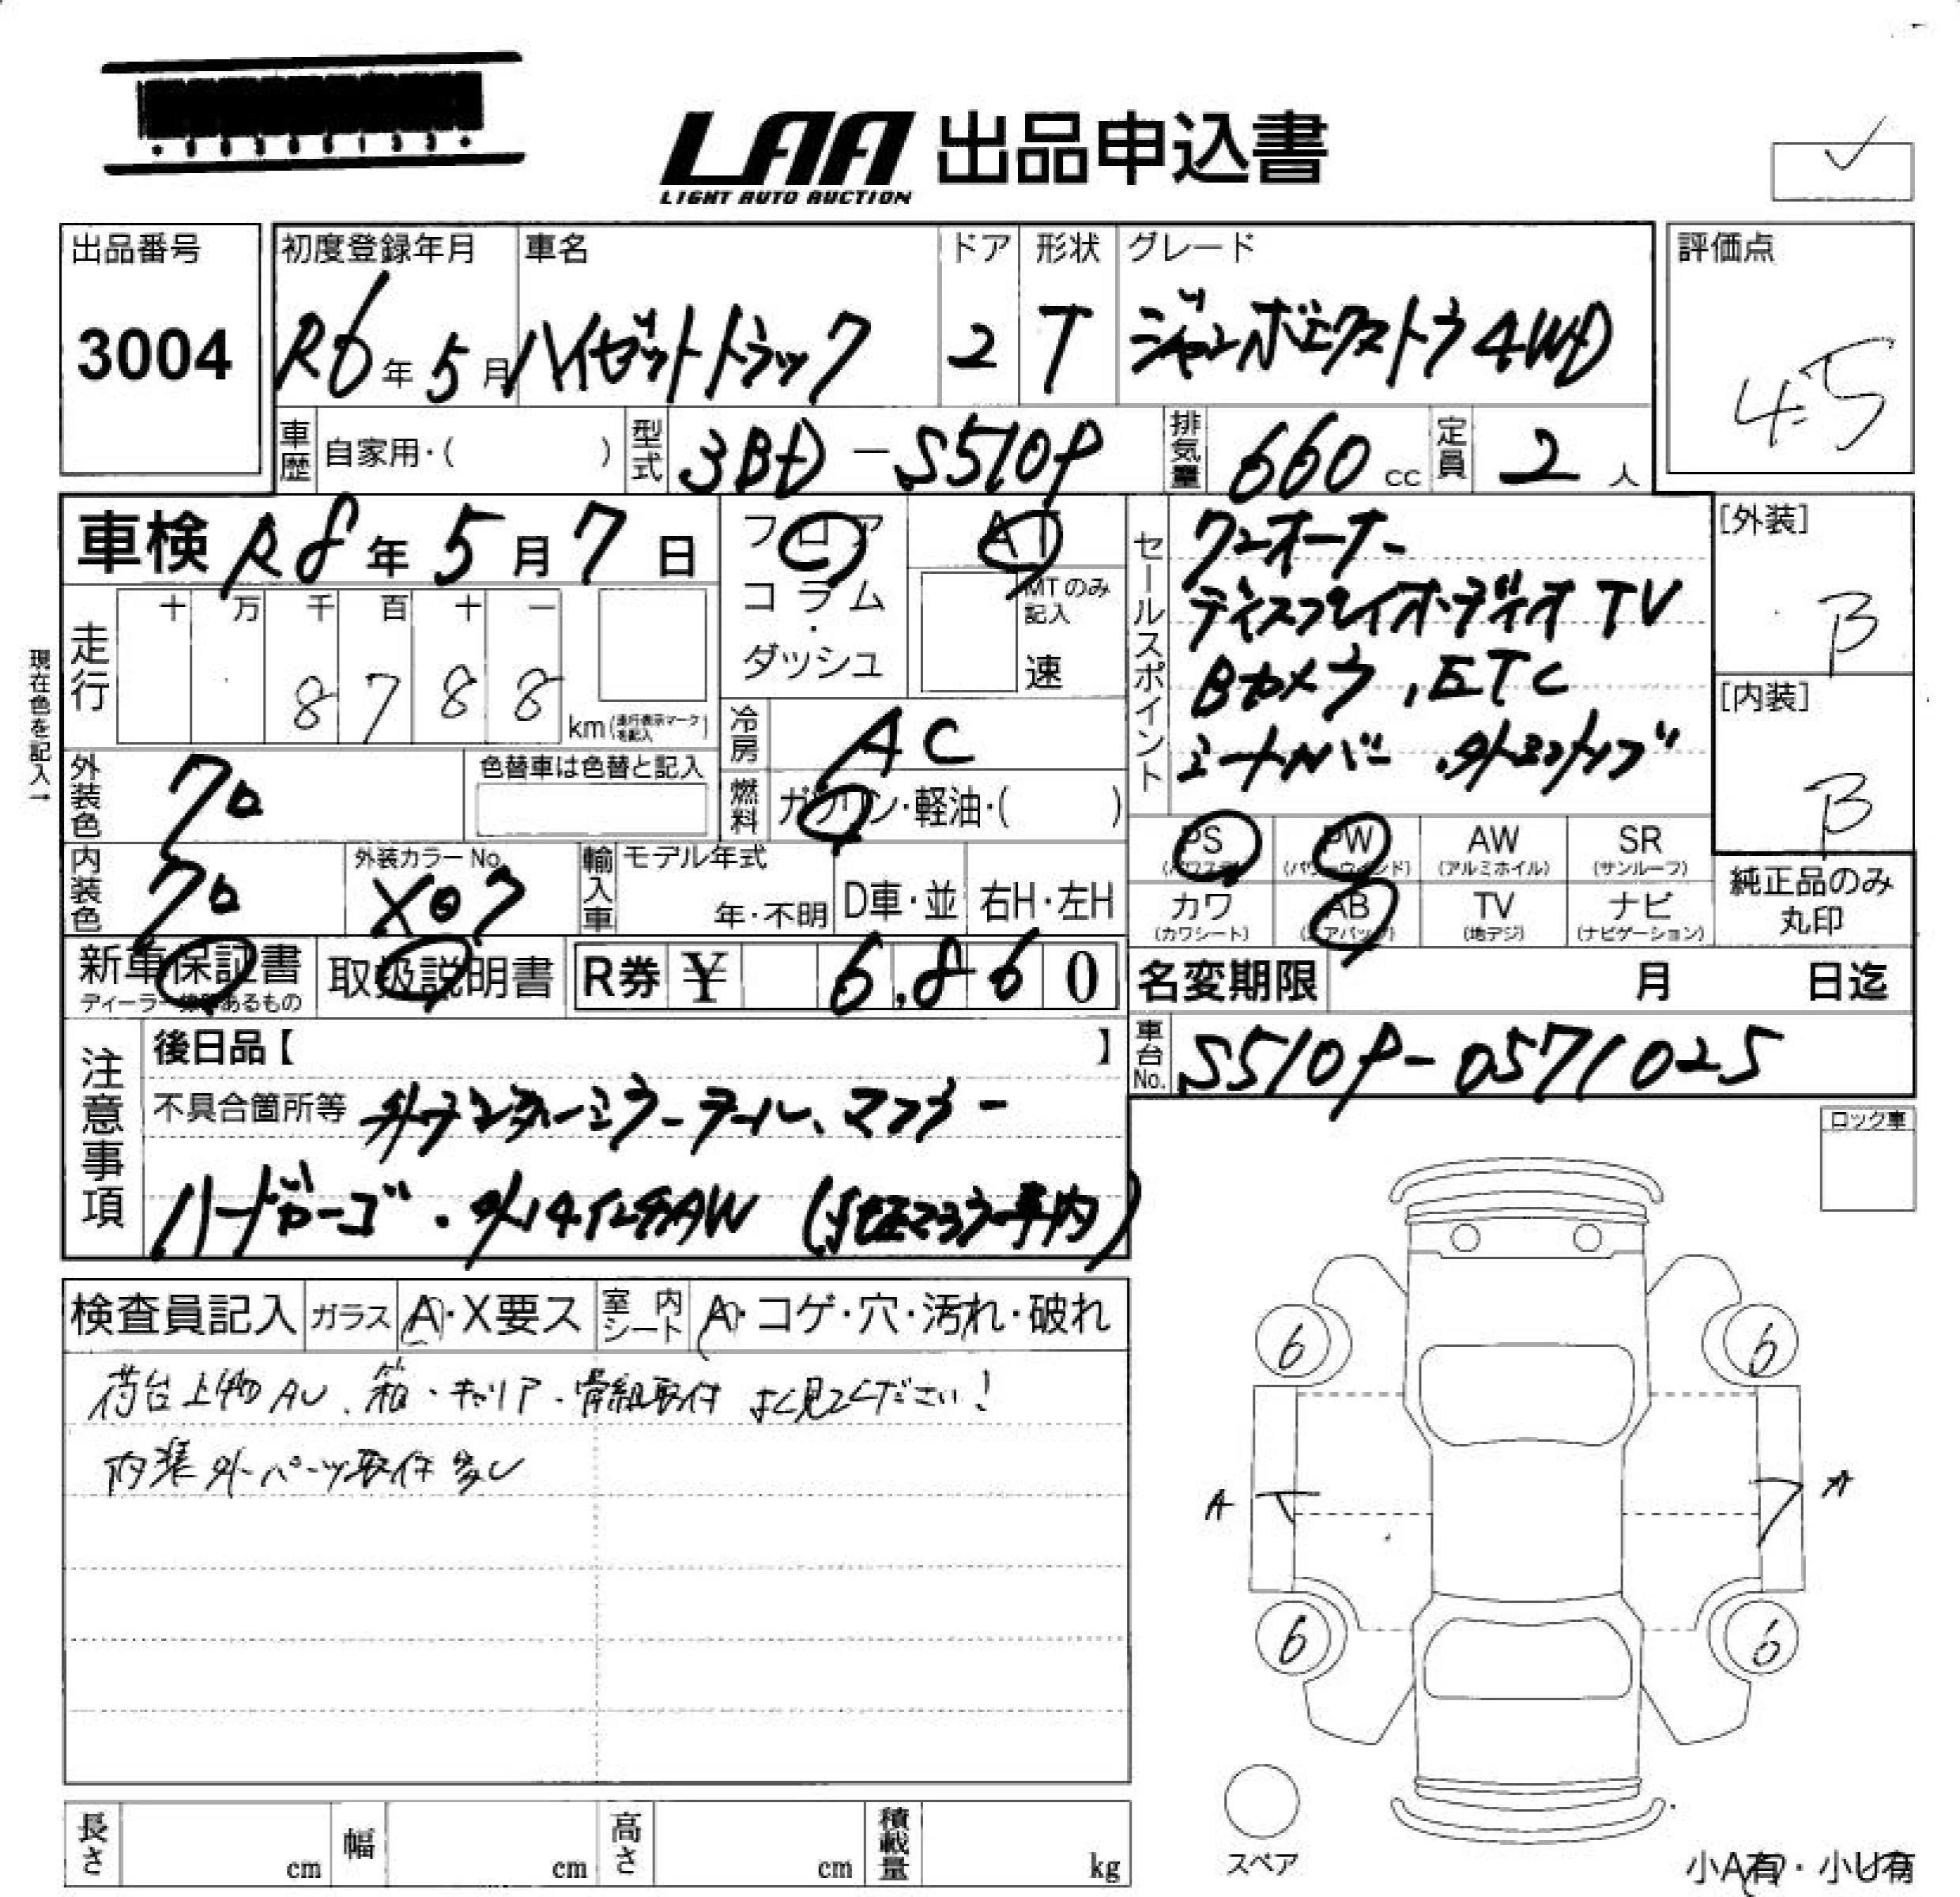 LAA 出品申込書
LIGHT AUTO AUCTION
出品番号 3004
初度登録年月 R6年5月
車名 ハイゼットトラック
ドア 2
形状 T
グレード ジャンボエクストラ4WD
評価点 4.5
車歴 自家用・( )
型式 3BD-S510P
排気量 660cc
定員 2人
車検 R8年5月7日
フロア
コラム
・
ダッシュ
AT
MTのみ記入
速
現在色を記入→
走行 十 万 千 百 十 一
8788 km(走行表示マークを記入)
冷房 AC
外装色 クロ
色替車は色替と記入
燃料 ガソリン・軽油・( )
内装色 クロ
外装カラーNo. X07
輸入車 モデル年式
年・不明 D車・並 右H・左H
セールスポイント
ワンオーナー
ディスプレイオーディオ TV
Bカメラ, ETC
[外装] B
[内装] B
PS (パワステ)
PW (パワーウインド)
AW (アルミホイル)
SR (サンルーフ)
カワ (カワシート)
AB (エアバッグ)
TV (地デジ)
ナビ (ナビゲーション)
純正品のみ
丸印
新車保証書
ディーラー捺印あるもの
取扱説明書
R券 ¥ 6,860
名変期限 月 日迄
車台No. S510P-0571025
注意事項
後日品【 】
不具合箇所等 テール、マフラー
ハードカーゴ・外14インチAW (純正マフラー車内)
ロック車
検査員記入 ガラス A・X要ス
室内シート A・コゲ・穴・汚れ・破れ
荷台上物AU、箱・キャリア・骨組取付 よく見てください!
内装外パーツ取付多し
6 6
A A
6 6
スペア
長さ cm 幅 cm 高さ cm 積載量 kg
小A有・小U有